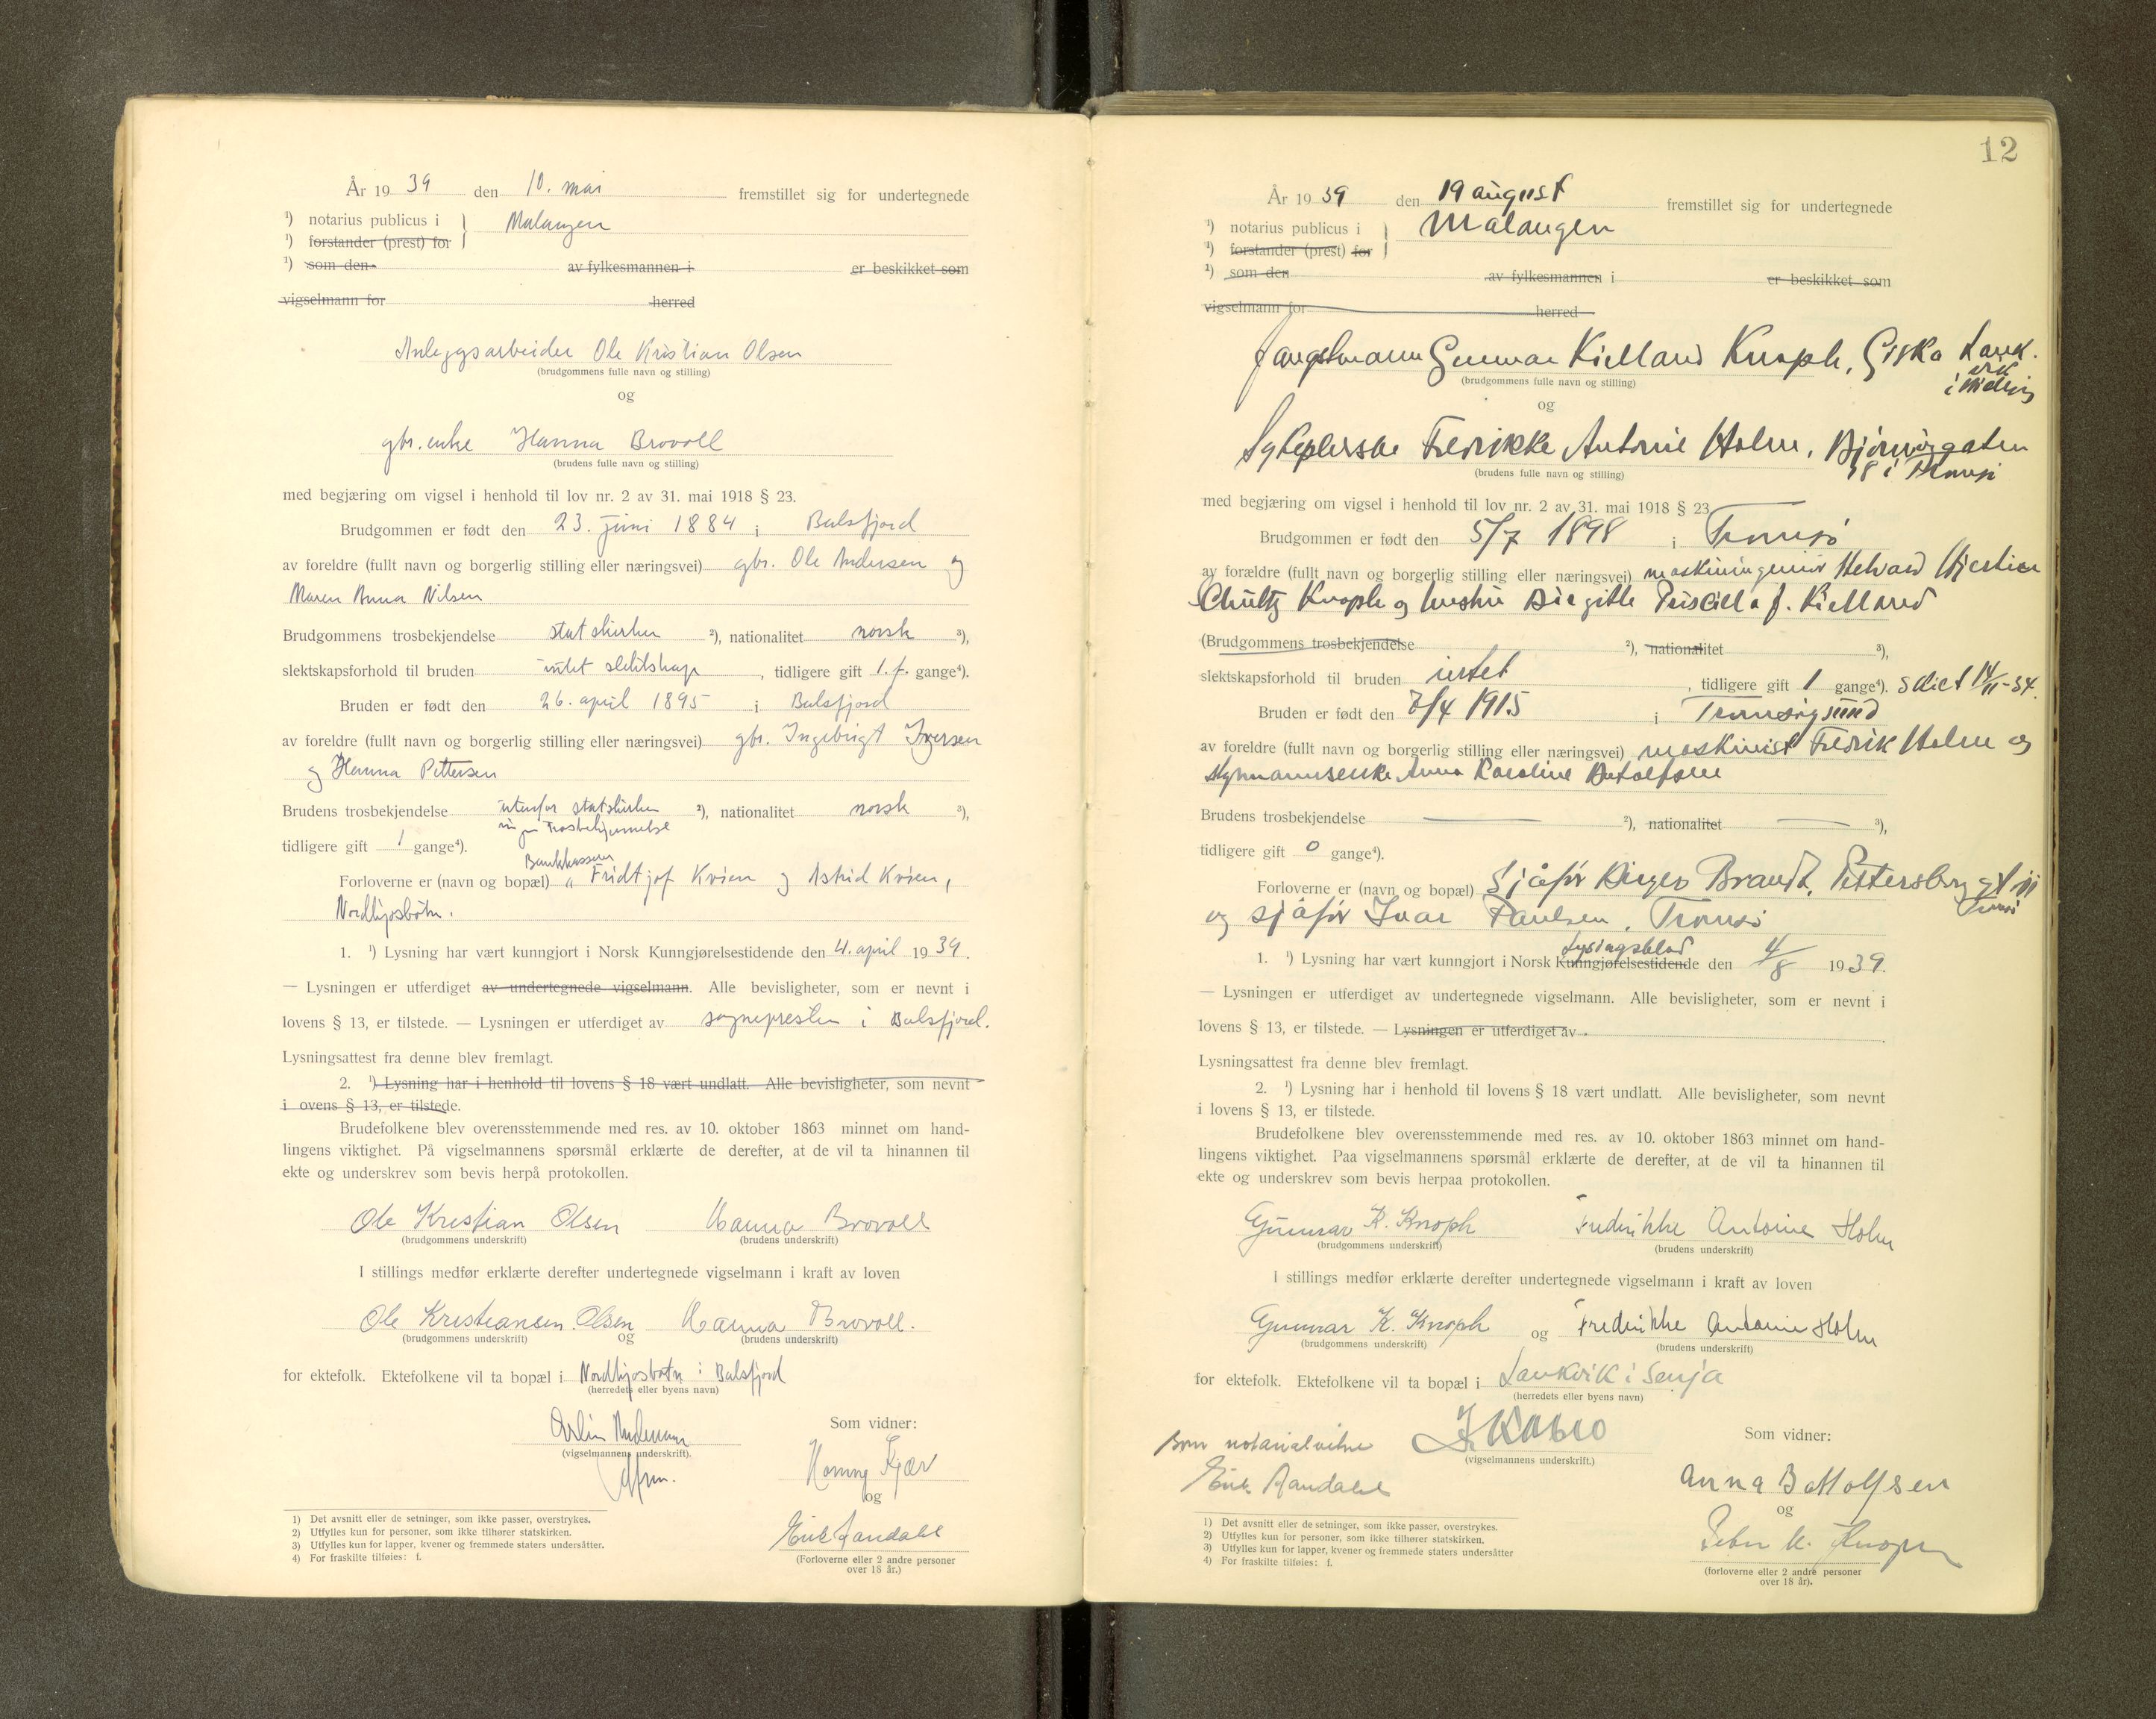 År 19 39 den 10. mai fremstillet sig for undertegnede
¹) notarius publicus i } Malangen
¹) forstander (prest) for
¹) som den av fylkesmannen i er beskikket som
vigselmann for herred
Anleggsarbeider Ole Kristian Olsen
(brudgommens fulle navn og stilling)
og
gbr. enke Hanna Brovoll
(brudens fulle navn og stilling)
med begjæring om vigsel i henhold til lov nr. 2 av 31. mai 1918 § 23.
Brudgommen er født den 23. juni 1884 i Balsfjord
av foreldre (fullt navn og borgerlig stilling eller næringsvei) gbr. Ole Andersen og
Maren Anna Nilsen
Brudgommens trosbekjendelse statskirken ²), nationalitet norsk ³),
slektskapsforhold til bruden intet slektskap, tidligere gift 1. f. gange⁴).
Bruden er født den 26. april 1895 i Balsfjord
av foreldre (fullt navn og borgerlig stilling eller næringsvei) gbr. Ingebrigt Iversen
og Hanna Pettersen
Brudens trosbekjendelse utenfor statskirken ²), nationalitet norsk ³),
ingen trosbekjennelse
tidligere gift 1 gange⁴).
Bankkasserer
Forloverne er (navn og bopæl) Fridtjof Kvien og Astrid Kvien,
Nordkjosbotn.
1. ¹) Lysning har vært kunngjort i Norsk Kunngjørelsestidende den 4. april 19 39.
— Lysningen er utferdiget av undertegnede vigselmann. Alle bevisligheter, som er nevnt i
lovens § 13, er tilstede. — Lysningen er utferdiget av sognepresten i Balsfjord.
Lysningsattest fra denne blev fremlagt.
2. ¹) Lysning har i henhold til lovens § 18 vært undlatt. Alle bevisligheter, som nevnt
i ovens § 13, er tilstede.
Brudefolkene blev overensstemmende med res. av 10. oktober 1863 minnet om hand-
lingens viktighet. På vigselmannens spørsmål erklærte de derefter, at de vil ta hinannen til
ekte og underskrev som bevis herpå protokollen.
Ole Kristian Olsen Hanna Brovoll
(brudgommens underskrift) (brudens underskrift)
I stillings medfør erklærte derefter undertegnede vigselmann i kraft av loven
Ole Kristiansen Olsen Hanna Brovoll.
(brudgommens underskrift) og (brudens underskrift)
for ektefolk. Ektefolkene vil ta bopæl i Nordkjosbotn i Balsfjord
(herredets eller byens navn)
Som vidner:
(vigselmannens underskrift).
Kjær
og
Erik Aandahl
(Forloverne eller 2 andre personer
over 18 år.)
1) Det avsnitt eller de setninger, som ikke passer, overstrykes.
2) Utfylles kun for personer, som ikke tilhører statskirken.
3) Utfylles kun for lapper, kvener og fremmede staters undersåtter.
4) For fraskilte tilføies: f.
12
År 19 39 den 19 august fremstillet sig for undertegnede
¹) notarius publicus i } Malangen
¹) forstander (prest) for
¹) som den av fylkesmannen i er beskikket som
vigselmann for herred
Fangstmann Gunnar Kielland Knoph, Giska Lauk.
vik
i
(brudgommens fulle navn og stilling)
og
Sykepleerske Fredrikke Antonie Holm, Bjørnørgaten
38 i Tromsø
(brudens fulle navn og stilling)
med begjæring om vigsel i henhold til lov nr. 2 av 31. mai 1918 § 23.
Brudgommen er født den 5/7 1898 i Tromsø
av forældre (fullt navn og borgerlig stilling eller næringsvei) maskiningeniør
Knoph og hustru Birgitte Priscilla f. Kielland
(Brudgommens trosbekjendelse ²), nationalitet ³),
slektskapsforhold til bruden intet, tidligere gift 1 gange⁴). skilt 14/11-34.
Bruden er født den 7/4 1915 i Tromsøysund
av foreldre (fullt navn og borgerlig stilling eller næringsvei) maskinist Fredrik Holm og
styrmannsenke Anna Karoline Botolfsen
Brudens trosbekjendelse ²), nationalitet ³),
tidligere gift 0 gange⁴).
Forloverne er (navn og bopæl) Sjåfør Birger Brandt, Pettersborg gt 11
Tromsø
og sjåfør Ivar Paulsen, Tromsø
Lysingsblad
1. ¹) Lysning har vært kunngjort i Norsk Kunngjørelsestidende den 4/8 19 39.
— Lysningen er utferdiget av undertegnede vigselmann. Alle bevisligheter, som er nevnt i
lovens § 13, er tilstede. — Lysningen er utferdiget av
Lysningsattest fra denne blev fremlagt.
2. ¹) Lysning har i henhold til lovens § 18 vært undlatt. Alle bevisligheter, som nevnt
i lovens § 13, er tilstede.
Brudefolkene blev overensstemmende med res. av 10. oktober 1863 minnet om hand-
lingens viktighet. Paa vigselmannens spørsmål erklærte de derefter, at de vil ta hinannen til
ekte og underskrev som bevis herpaa protokollen.
Gunnar K. Knoph Fredrikke Antonie Holm
(brudgommens underskrift) (brudens underskrift)
I stillings medfør erklærte derefter undertegnede vigselmann i kraft av loven
Gunnar K. Knoph og Fredrikke Antonie Holm
(brudgommens underskrift) (brudens underskrift)
for ektefolk. Ektefolkene vil ta bopæl i Laukvik i Senja
(herredets eller byens navn)
Som notarialvitne
(vigselmannens underskrift.)
Som vidner:
Erik Aandahl
Anna Bottolfsen
og
Peter K. Knoph
(forloverne eller 2 andre personer
over 18 år).
1) Det avsnitt eller de setninger, som ikke passer, overstrykes.
2) Utfylles kun for personer, som ikke tilhører statskirken.
3) Utfylles kun for lapper, kvener og fremmede staters undersåtter
4) For fraskilte tilføies: f.